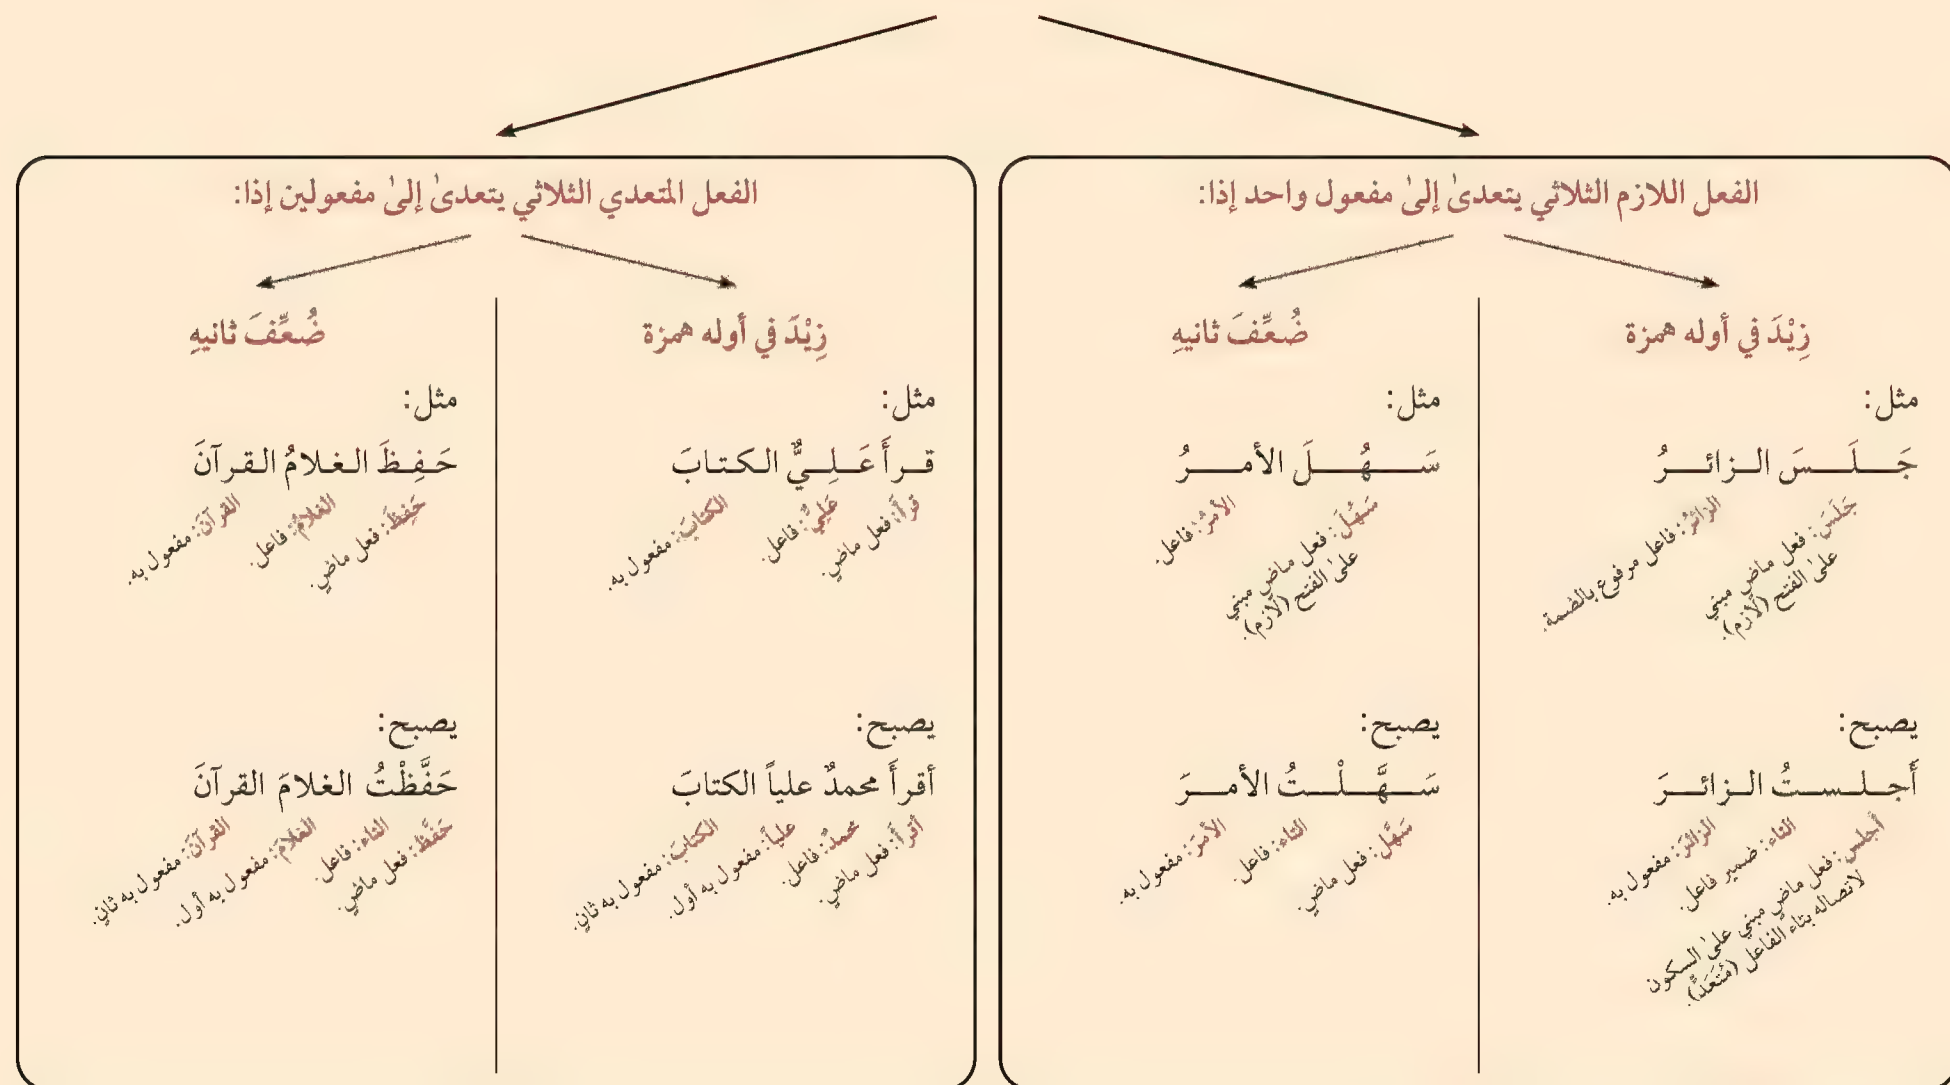 الفعل اللازم الثلاثي يتعدىٰ إلىٰ مفعول واحد إذا:
زِيْدَ في أوله همزة
مثل:
جَـلَـسَ الـزائـرُ
جَلَسَ: فعل ماضٍ مبني
علىٰ الفتح (لازم).
الزائرُ: فاعل مرفوع بالضمة.
يصبح:
أَجـلـسـتُ الـزائـرَ
أجلس: فعل ماضٍ مبني علىٰ السكون
لاتصاله بتاء الفاعل (مُتَعَدٍّ).
التاء: ضمير فاعل.
الزائرَ: مفعول به.
ضُعِّفَ ثانيهِ
مثل:
سَـهُـلَ الأمـرُ
سَهُلَ: فعل ماضٍ مبني
علىٰ الفتح (لازم).
الأمرُ: فاعل.
يصبح:
سَـهَّـلْـتُ الأمـرَ
سَهَّل: فعل ماضٍ.
التاء: فاعل.
الأمرَ: مفعول به.
الفعل المتعدي الثلاثي يتعدىٰ إلىٰ مفعولين إذا:
زِيْدَ في أوله همزة
مثل:
قـرأَ عَـلِـيٌّ الـكـتـابَ
قرأَ: فعل ماضٍ.
عَليٌّ: فاعل.
الكتابَ: مفعول به.
يصبح:
أقرأَ محمدٌ علياً الكتابَ
أقرأَ: فعل ماضٍ.
محمدٌ: فاعل.
علياً: مفعول به أول.
الكتابَ: مفعول به ثانٍ.
ضُعِّفَ ثانيهِ
مثل:
حَـفِـظَ الـغـلامُ الـقـرآنَ
حَفِظَ: فعل ماضٍ.
الغلامُ: فاعل.
القرآنَ: مفعول به.
يصبح:
حَفَّظْتُ الغلامَ القرآنَ
حَفَّظْ: فعل ماضٍ.
التاء: فاعل.
الغلامَ: مفعول به أول.
القرآنَ: مفعول به ثانٍ.